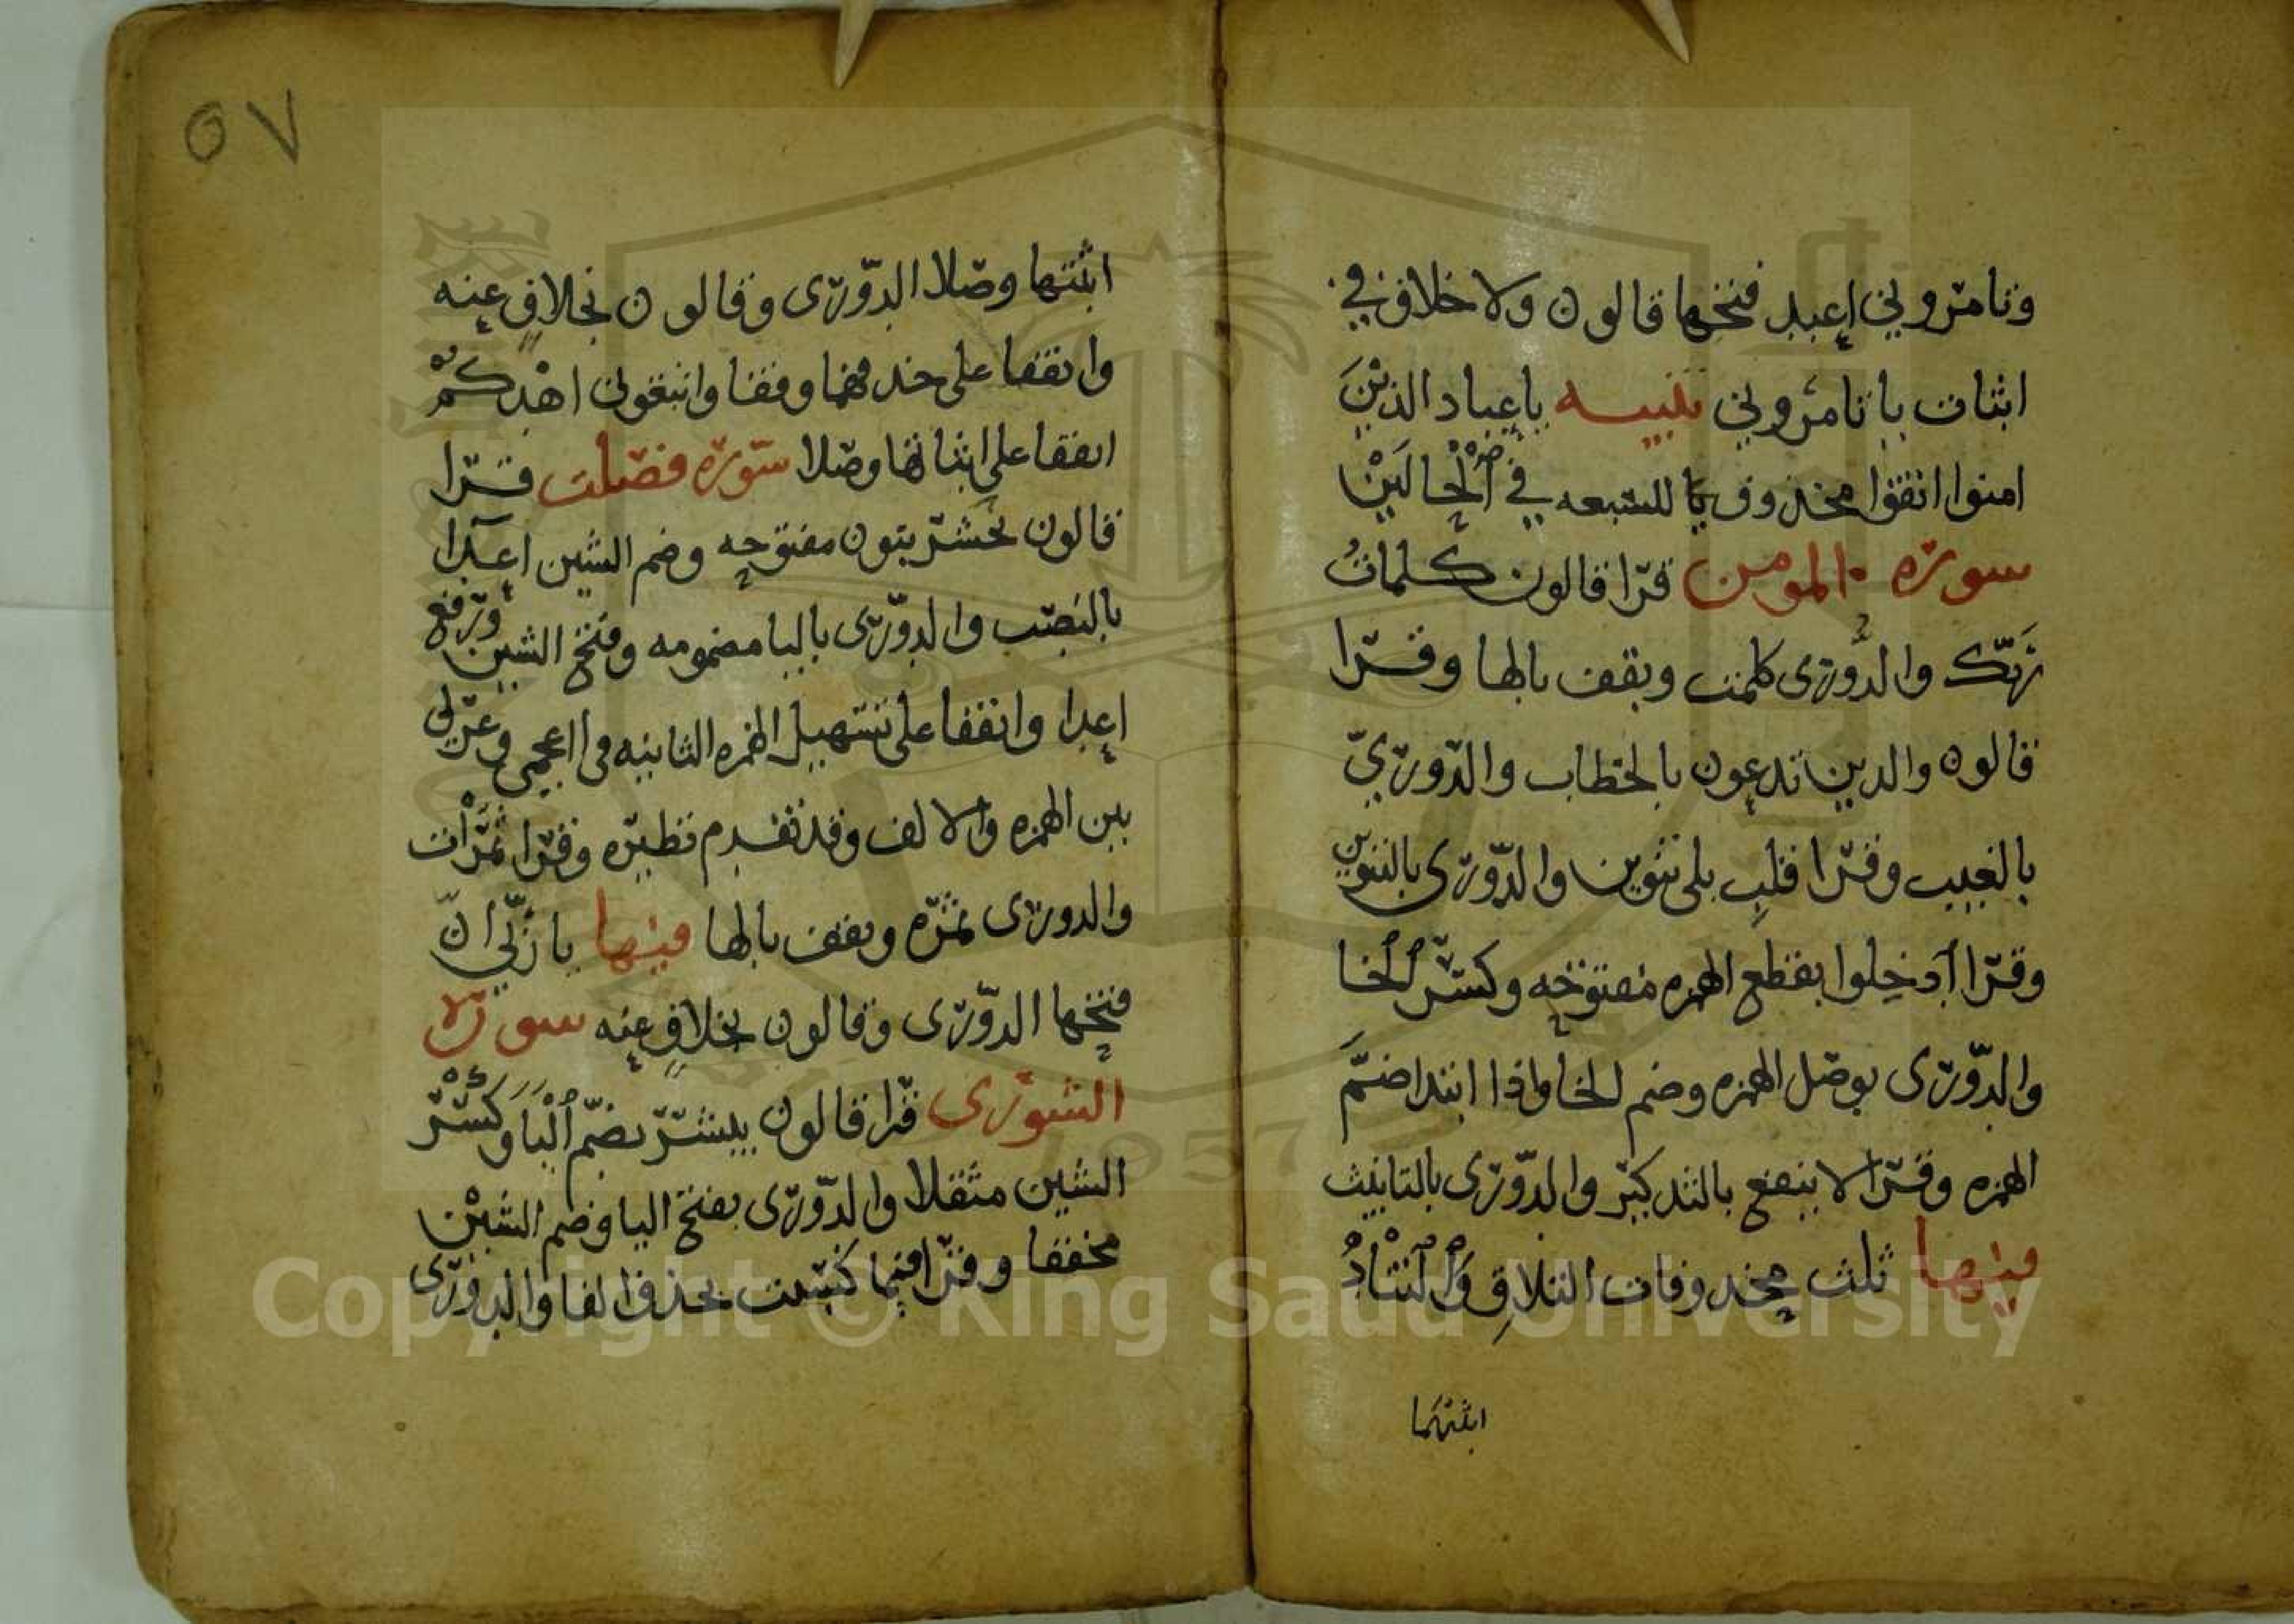 وتامروني اعبد فتحها قالون ولا خلاف في
اثبات يا تامروني تنبيه ياعباد الذين
امنوا اتفقوا محذوف يا للسبعه في الحالين
سورة المومن قرا قالون كلمات
ربك والدوري كلمت ويقف بالها وقرا
قالون والدين تدعون بالخطاب والدوري
بالغيب وقرا قلب بلى تنوين والدوري بالتنوين
وقرا ادخلوا بقطع الهمزه مفتوحه وكسر الخا
والدوري بوصل الهمزه وضم الخا واذا ابتدا ضم
الهمزه وقرا لا ينفع بالتدكير والدوري بالتانيث
فيها ثلث محذوفات التلاق والتناد
اثبتهما
٥٧
اثبتها وصلا الدوري وقالون بخلاف عنه
واتفقا على حذفهما وقفا واتبعوني اهدكم
اتفقا على اثباتها وصلا سورة فصلت قرا
قالون نحشر بنون مفتوحه وضم الشين اعدآ
بالنصب والدوري باليا مضمومه وفتح الشين ورفع
اعدا واتفقا على تسهيل الهمزه الثانيه في ااعجمي وعربي
بين الهمزه والالف وقد تقدم نظيره وقرا ثمرات
والدوري ثمرة ويقف بالها فيها يا ربي ان
فتحها الدوري وقالون بخلاف عنه سورة
الشورى قرا قالون يبشر بضم اليا وكسر
الشين مثقلا والدوري بفتح اليا وضم الشين
مخففا وقرا فبما كسبت بحذف الفا والدوري
1957
Copyright © King Saud University